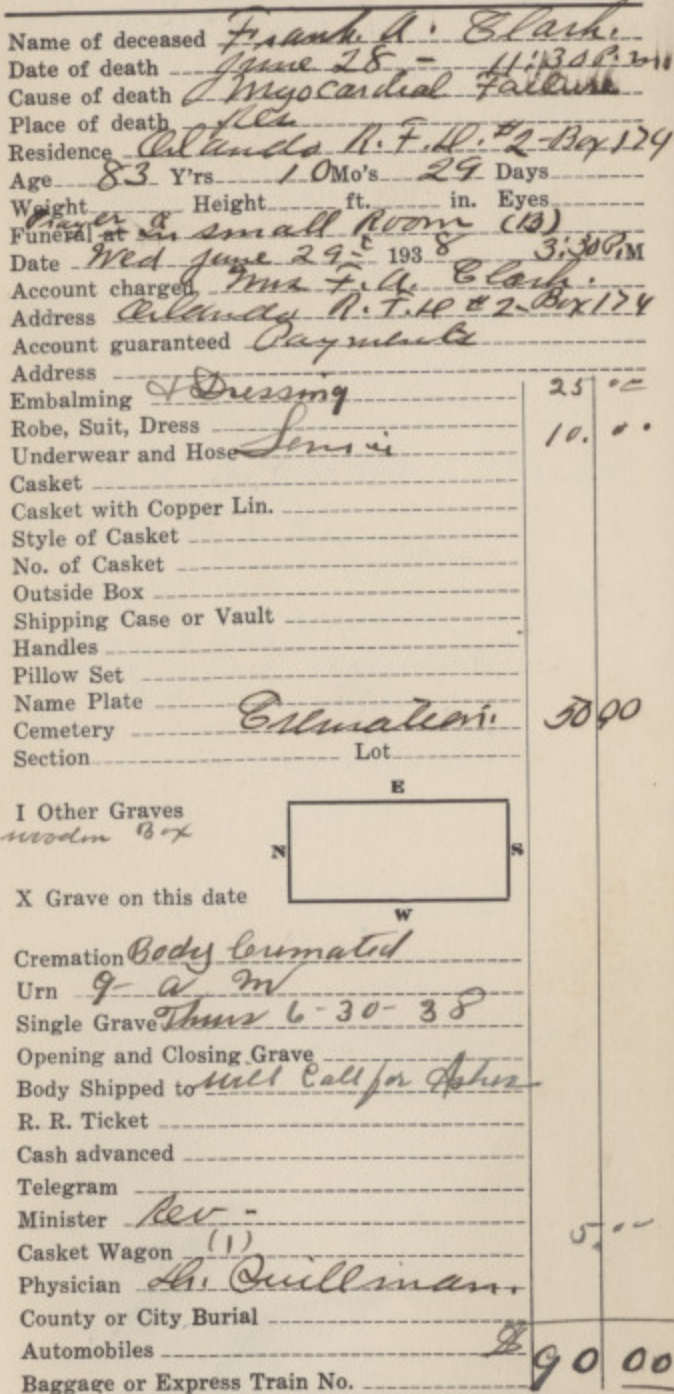 Name of deceased Frank A. Clark.
Date of death June 28 - 11:30 P.m
Cause of death Myocardial Failure
Place of death Res
Residence Orlando R.F.D. #2-Box 174
Age 83 Y'rs 10 Mo's 29 Days
Weight Height ft. in. Eyes
Funeral at In small Room (B)
Date Wed June 29 1938 3:30 P.M
Account charged Mrs F.A. Clark.
Address Orlando R.F.D #2-Box 174
Account guaranteed Payments
Address
Embalming & Dressing 25 00
Robe, Suit, Dress 10. 00
Underwear and Hose
Casket
Casket with Copper Lin.
Style of Casket
No. of Casket
Outside Box
Shipping Case or Vault
Handles
Pillow Set
Name Plate
Cemetery Cremation. 50 00
Section Lot
E
I Other Graves
wooden Box
N S
X Grave on this date
W
Cremation Body Cremated
Urn 9- a m
Single Grave Thurs 6-30-38
Opening and Closing Grave
Body Shipped to will Call for Ashes
R. R. Ticket
Cash advanced
Telegram
Minister Rev - 5.00
Casket Wagon (1)
Physician Dr. Quillman.
County or City Burial
Automobiles $ 90 00
Baggage or Express Train No.